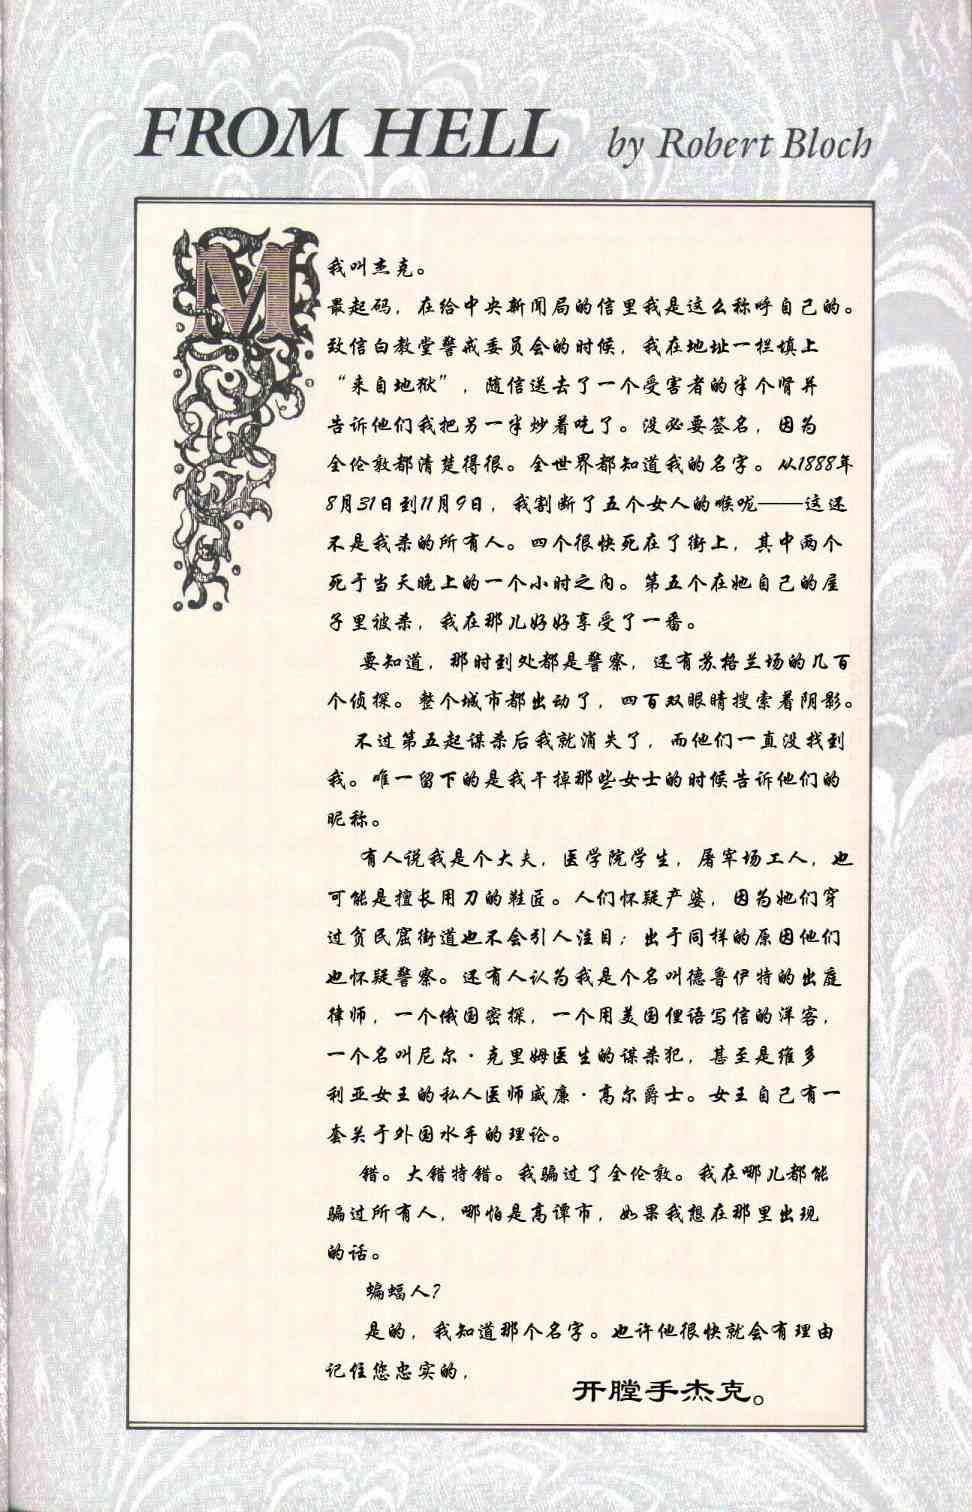 FROM HELL by Robert Bloch
M
我叫杰克。
最起码，在给中央新闻局的信里我是这么称呼自己的。
致信白教堂警戒委员会的时候，我在地址一栏填上
“来自地狱”，随信送去了一个受害者的半个肾并
告诉他们我把另一半炒着吃了。没必要签名，因为
全伦敦都清楚得很。全世界都知道我的名字。从1888年
8月31日到11月9日，我割断了五个女人的喉咙——这还
不是我杀的所有人。四个很快死在了街上，其中两个
死于当天晚上的一个小时之内。第五个在她自己的屋
子里被杀，我在那儿好好享受了一番。
要知道，那时到处都是警察，还有苏格兰场的几百
个侦探。整个城市都出动了，四百双眼睛搜索着阴影。
不过第五起谋杀后我就消失了，而他们一直没找到
我。唯一留下的是我干掉那些女士的时候告诉他们的
昵称。
有人说我是个大夫，医学院学生，屠宰场工人，也
可能是擅长用刀的鞋匠。人们怀疑产婆，因为她们穿
过贫民窟街道也不会引人注目；出于同样的原因他们
也怀疑警察。还有人认为我是个名叫德鲁伊特的出庭
律师，一个俄国密探，一个用美国俚语写信的洋客，
一个名叫尼尔·克里姆医生的谋杀犯，甚至是维多
利亚女王的私人医师威廉·高尔爵士。女王自己有一
套关于外国水手的理论。
错。大错特错。我骗过了全伦敦。我在哪儿都能
骗过所有人，哪怕是高谭市，如果我想在那里出现
的话。
蝙蝠人？
是的，我知道那个名字。也许他很快就会有理由
记住您忠实的，
开膛手杰克。